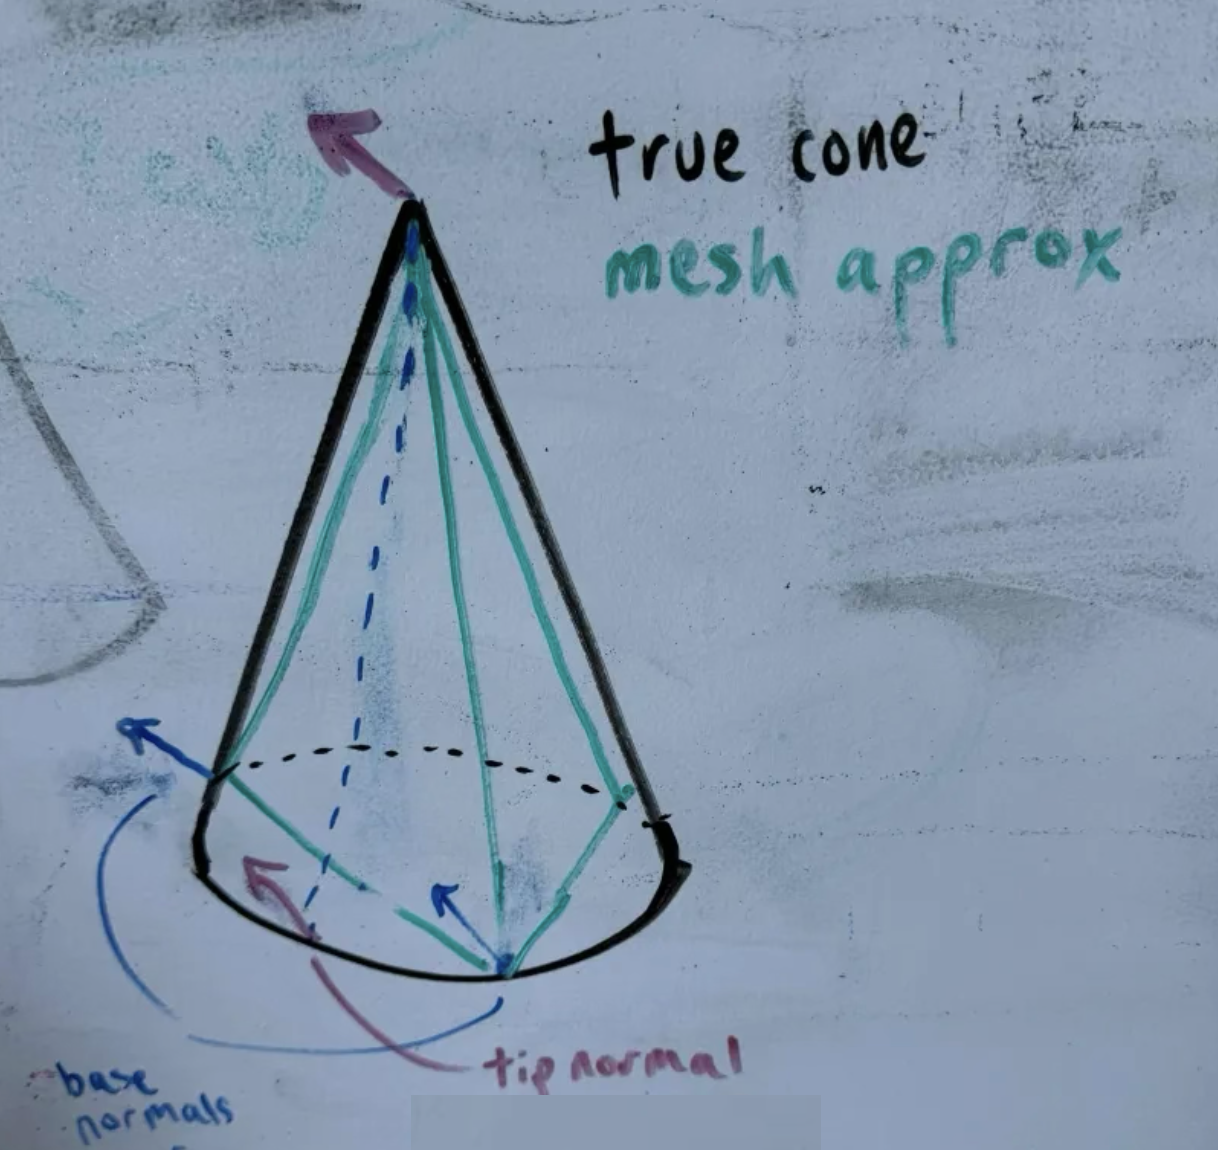 true cone
mesh approx
tip normal
base
normals